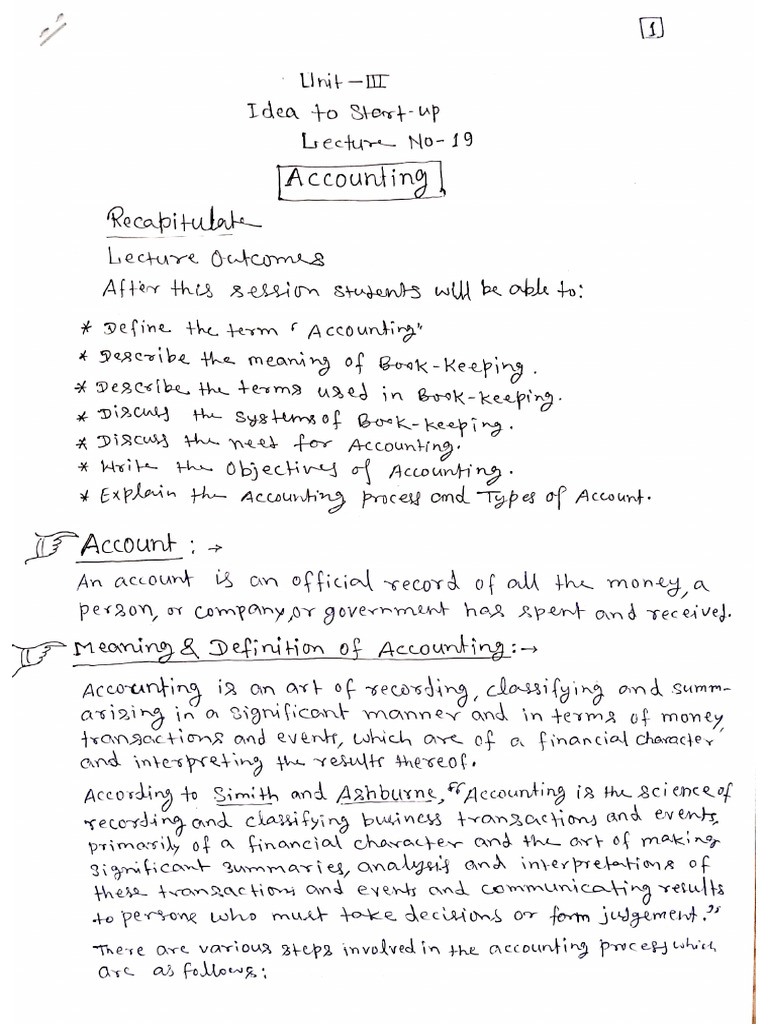 1
Unit-III
Idea to Start-up
Lecture No-19
Accounting
Recapitulate
Lecture Outcomes
After this session students will be able to:
* Define the term "Accounting"
* Describe the meaning of Book-Keeping.
* Describe the terms used in Book-keeping.
* Discuss the systems of Book-keeping.
* Discuss the need for Accounting.
* Write the Objectives of Accounting.
* Explain the Accounting process and Types of Account.
Account:→
An account is an official record of all the money, a
person, or company, or government has spent and received.
Meaning & Definition of Accounting:→
Accounting is an art of recording, classifying and summ-
arising in a significant manner and in terms of money,
transactions and events, which are of a financial character
and interpreting the results thereof.
According to Simith and Ashburne, "Accounting is the science of
recording and classifying business transactions and events,
primarily of a financial character and the art of making
significant summaries, analysis and interpretations of
these transactions and events and communicating results
to persone who must take decisions or form judgement."
There are various steps involved in the accounting process which
are as follows: